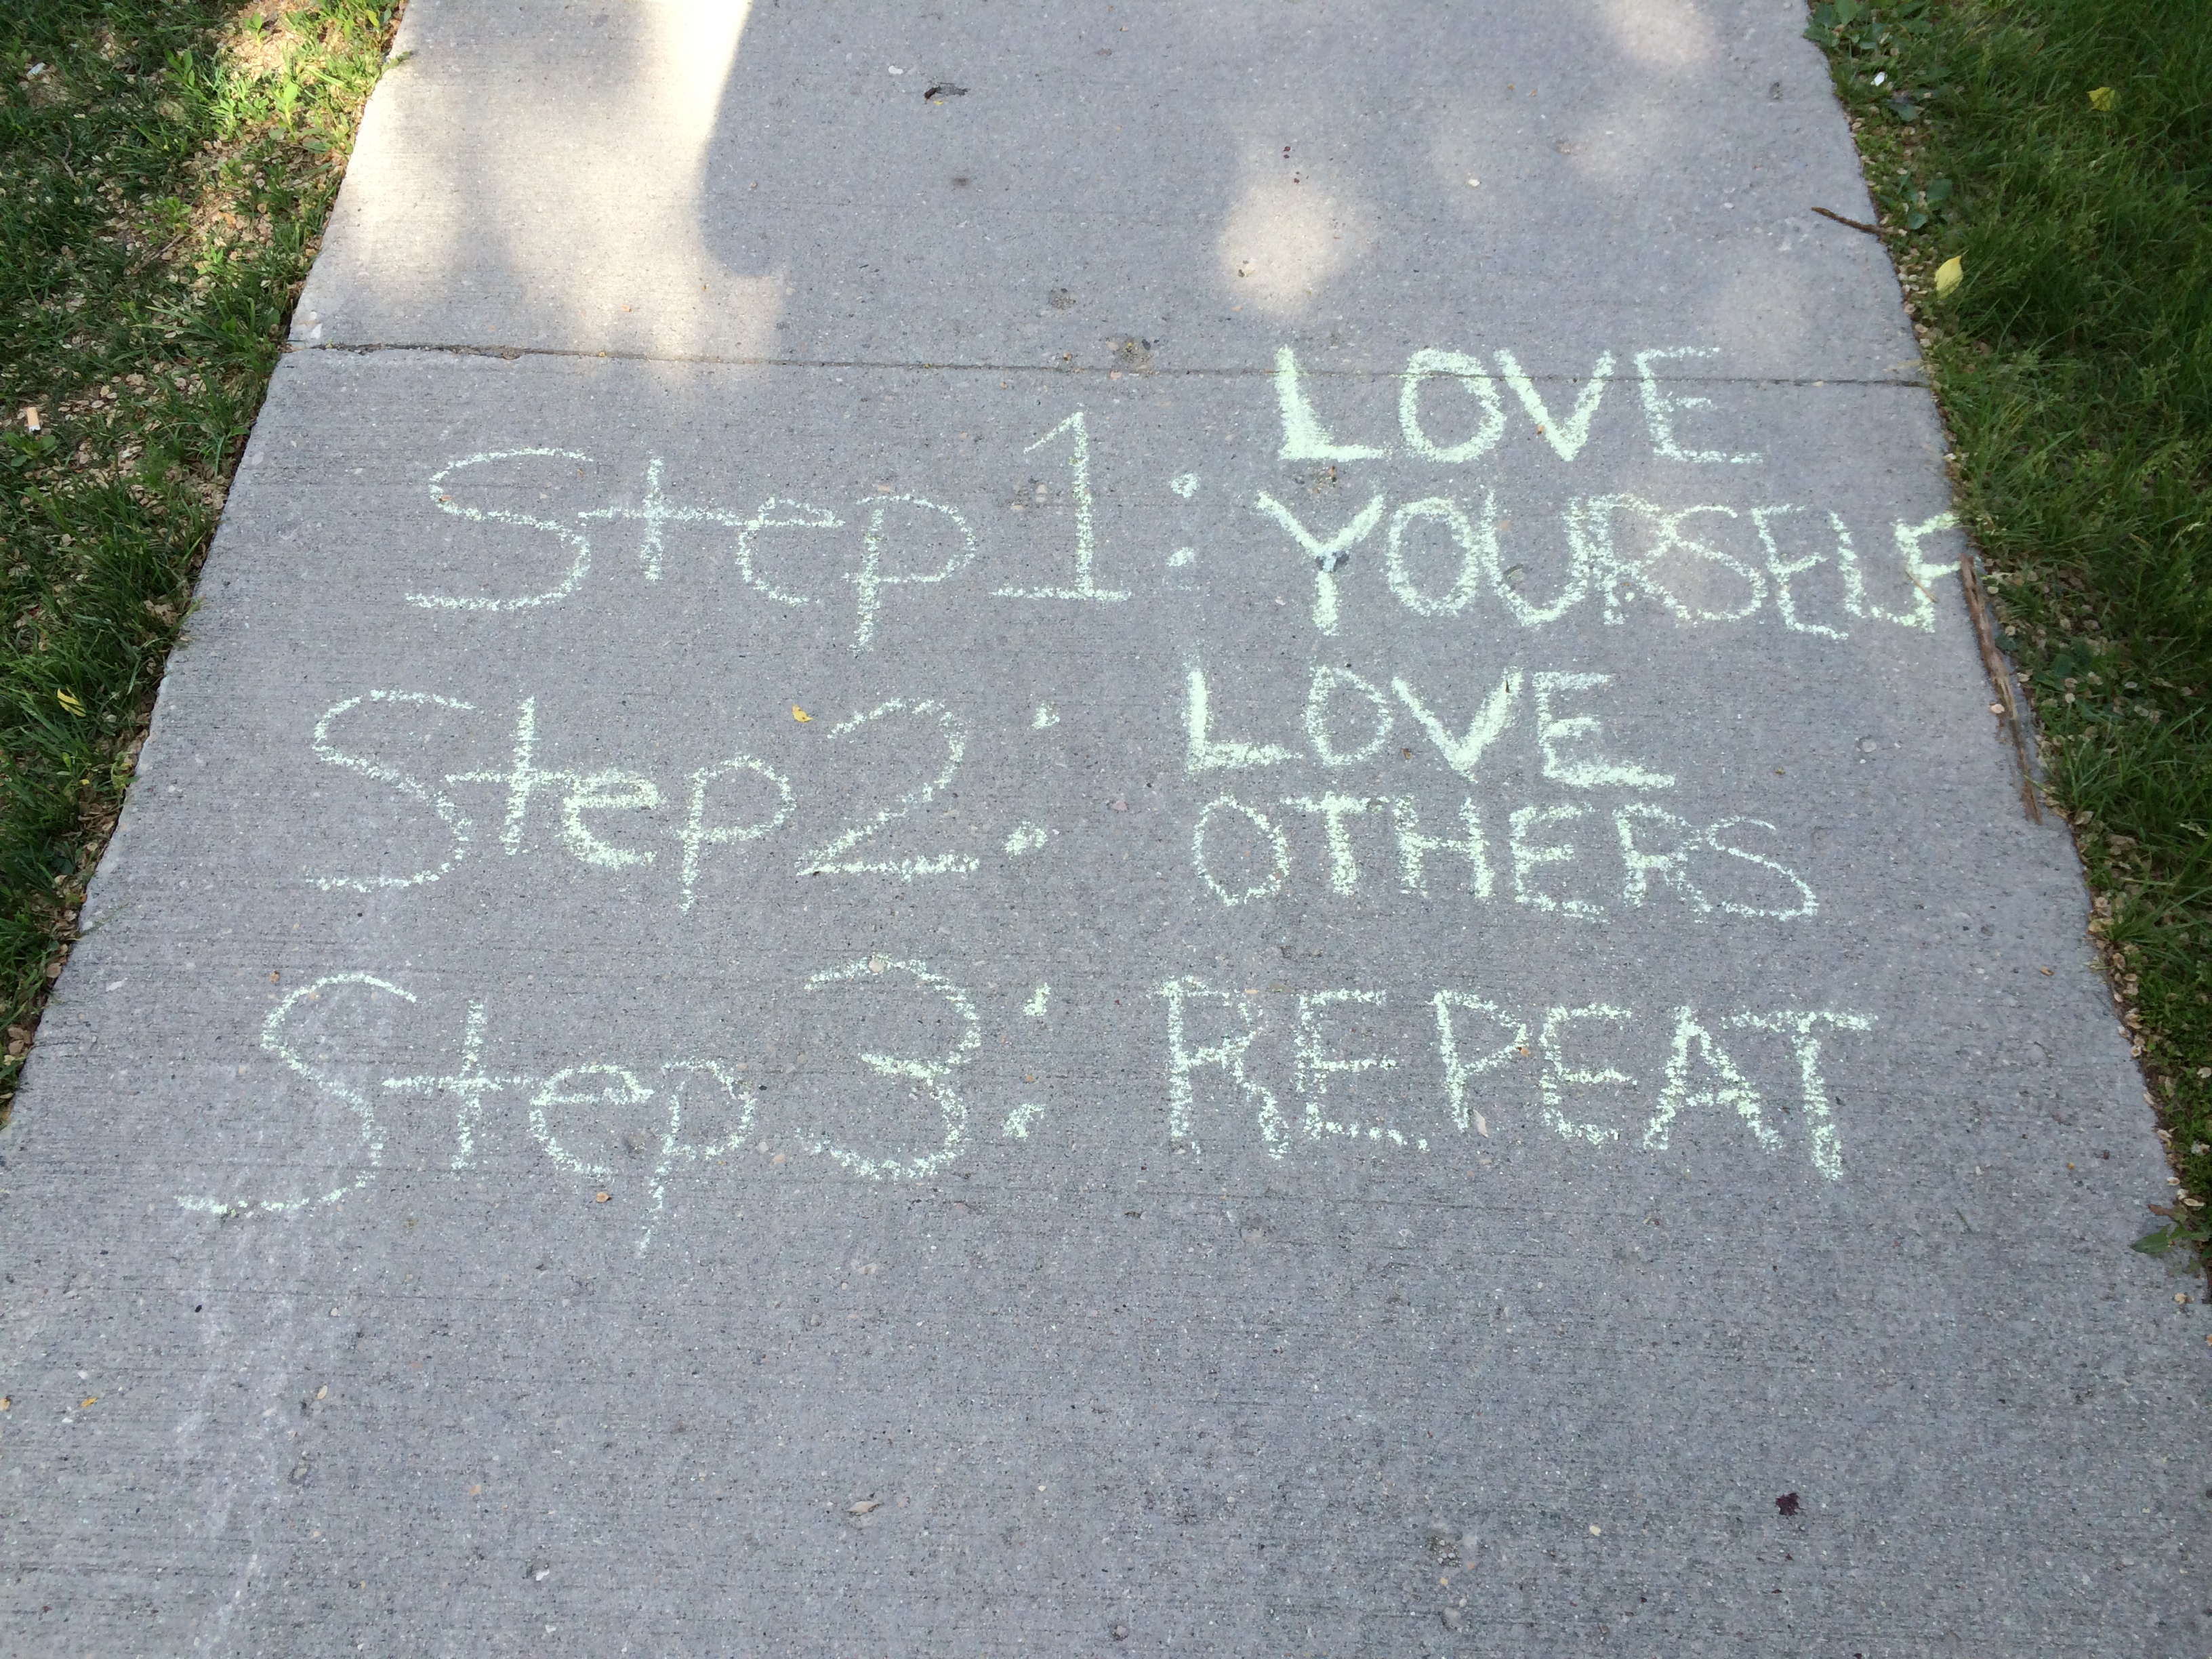 Step 1: LOVE
YOURSELF
Step 2: LOVE
OTHERS
Step 3: REPEAT